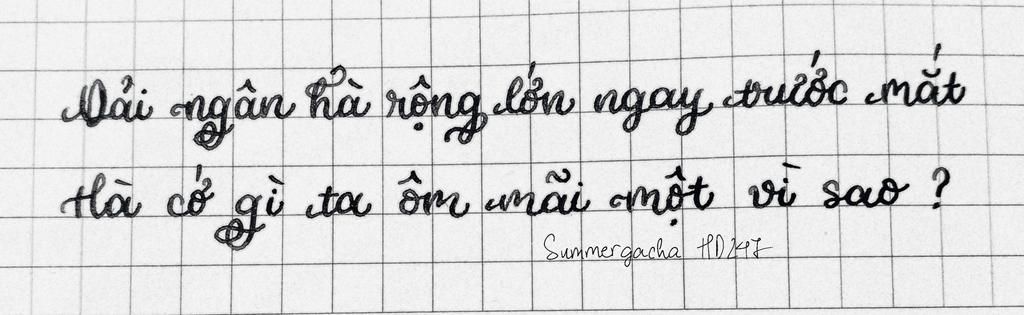 Dải ngân hà rộng lớn ngay trước mắt
Hà cớ gì ta ôm mãi một vì sao ?
Summergacha HD247